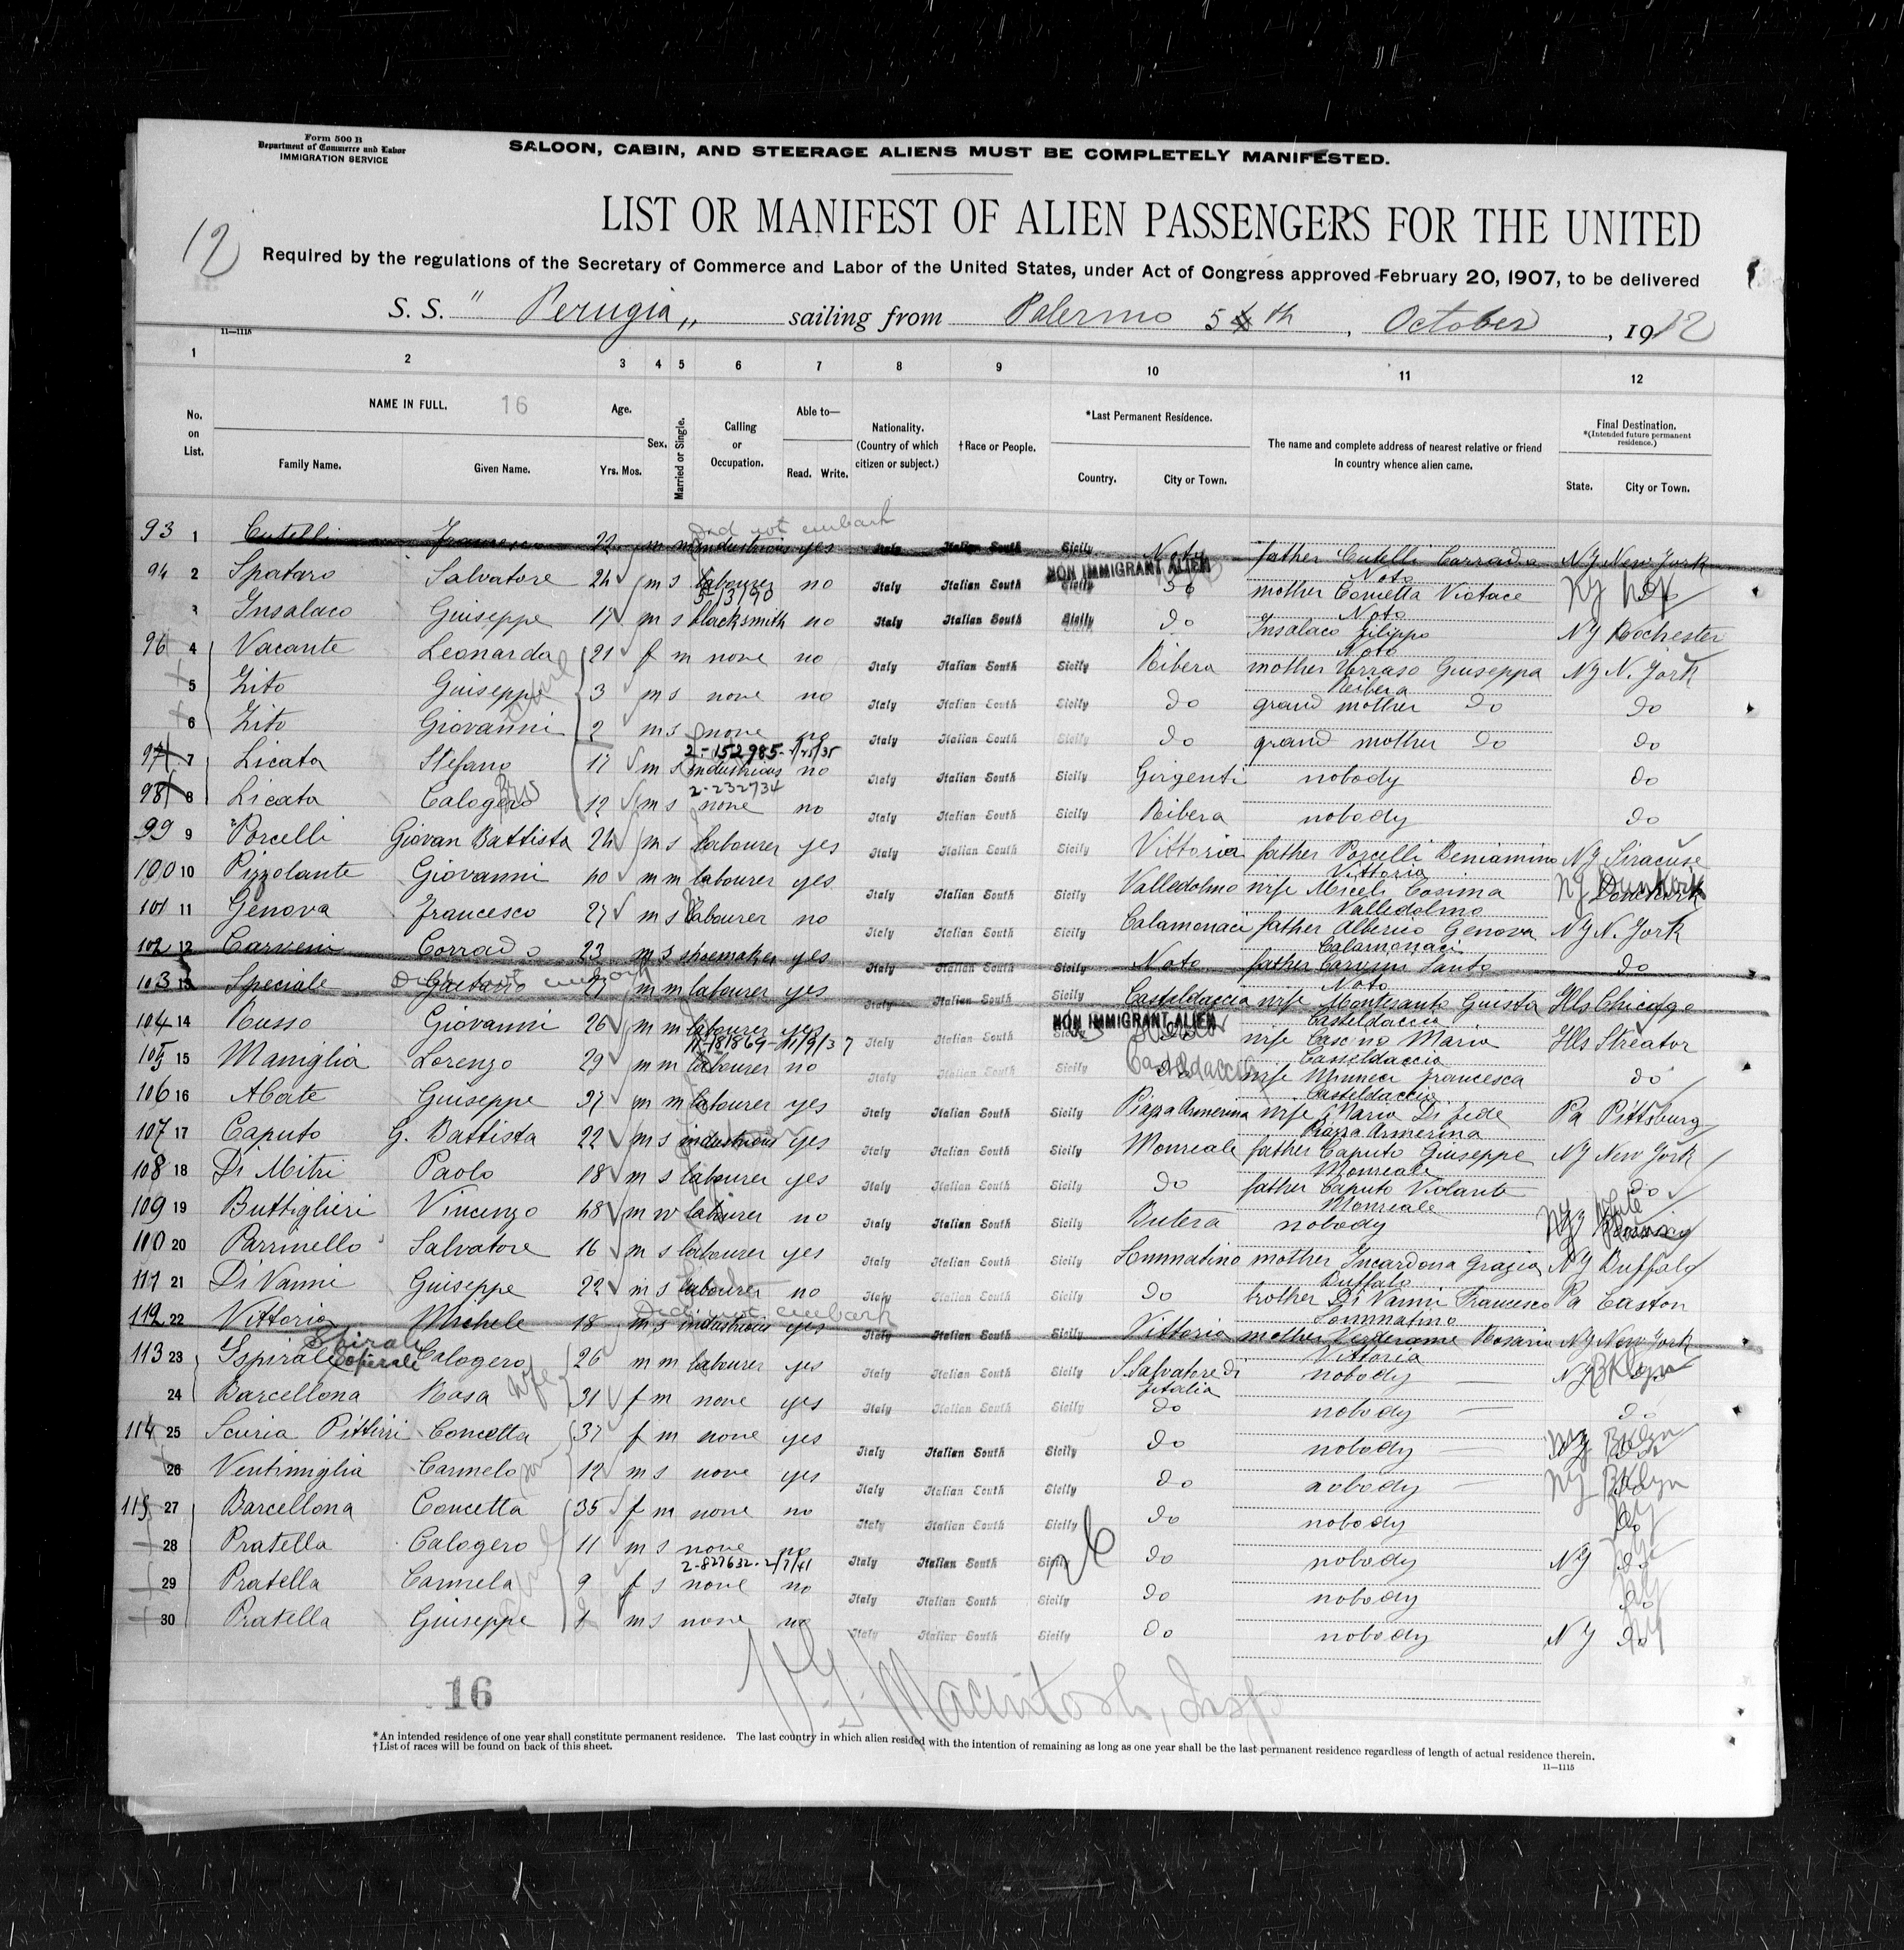 Form 500 B
Department of Commerce and Labor
IMMIGRATION SERVICE
SALOON, CABIN, AND STEERAGE ALIENS MUST BE COMPLETELY MANIFESTED.
12
LIST OR MANIFEST OF ALIEN PASSENGERS FOR THE UNITED
Required by the regulations of the Secretary of Commerce and Labor of the United States, under Act of Congress approved February 20, 1907, to be delivered
S. S. " Perugia „ sailing from Palermo 5 th, October, 1912
11—1115
1 2 3 4 5 6 7 8 9 10 11 12
No. on List. NAME IN FULL. 16 Family Name. Given Name. Age. Yrs. Mos. Sex. Married or Single. Calling or Occupation. Able to— Read. Write. Nationality. (Country of which citizen or subject.) †Race or People. *Last Permanent Residence. Country. City or Town. The name and complete address of nearest relative or friend in country whence alien came. Final Destination. *(Intended future permanent residence.) State. City or Town.
Did not embark
93 1 Cutelli Francesco 22 m m industrious yes Italy Italian South Sicily Noto father Cutelli Corrado Noto NY New York
NON IMMIGRANT ALIEN
94 2 Spataro Salvatore 24 m s labourer no Italy Italian South Sicily do mother Concetta Noto NY
5/3/90
3 Insalaco Giuseppe 17 m s blacksmith no Italy Italian South Sicily do Insalaco Filippo Noto NY Rochester
96 4 Vacante Leonarda 21 f m none no Italy Italian South Sicily Ribera mother Giuseppa Ribera NY N. York
5 Zito Giuseppe 3 m s none no Italy Italian South Sicily do grand mother do do
6 Zito Giovanni 2 m s none no Italy Italian South Sicily do grand mother do do
2-152985-
97 7 Licata Stefano 17 m s industrious no Italy Italian South Sicily Girgenti nobody do
2-232734
98 8 Licata Calogero Bro 12 m s none no Italy Italian South Sicily Ribera nobody do
99 9 Porcelli Giovan Battista 24 m s labourer yes Italy Italian South Sicily Vittoria father Porcelli Beniamino Vittoria NY Siracuse
100 10 Pizzolante Giovanni 40 m m labourer yes Italy Italian South Sicily Valledolmo wife Miceli Cosima Valledolmo NY Dunkirk
101 11 Genova Francesco 27 m s labourer no Italy Italian South Sicily Calamonaci father Alberico Genova Calamonaci NY N. York
102 12 Carvini Corrado 23 m s shoemaker yes Italy Italian South Sicily Noto father Carvini Santo Noto do
Did not embark
103 13 Speciale Gaetano 27 m m labourer yes Italy Italian South Sicily Casteldaccia wife Montesanto Casteldaccia Ills Chicago
NON IMMIGRANT ALIEN
104 14 Russo Giovanni 26 m m labourer yes Italy Italian South wife Cascino Maria Casteldaccia Ills Streator
11-181869-11/9/37
105 15 Maniglia Lorenzo 29 m m labourer no Italy Italian South Sicily Casteldaccia wife Minneci Francesca Casteldaccia do
106 16 Abate Giuseppe 27 m m labourer yes Italy Italian South Sicily Piazza Armerina wife Maria Di Fede Piazza Armerina Pa Pittsburg
107 17 Caputo G. Battista 22 m s industrious yes Italy Italian South Sicily Monreale father Caputo Giuseppe Monreale NY New York
108 18 Di Mitri Paolo 18 m s labourer yes Italy Italian South Sicily do father Caputo Violante Monreale do
109 19 Buttiglieri Vincenzo 48 m w labourer no Italy Italian South Sicily Butera nobody NY
110 20 Parrinello Salvatore 16 m s labourer yes Italy Italian South Sicily Sommatino mother Incardona Grazia Buffalo NY Buffalo
111 21 Di Vanni Giuseppe 22 m s labourer no Italy Italian South Sicily do brother Di Vanni Francesco Sommatino Pa Easton
Did not embark
112 22 Vittoria Michele 18 m s industrious yes Italy Italian South Sicily Vittoria mother Verderame Rosaria Vittoria NY New York
Spirale
113 23 Ispirale Calogero 26 m m labourer yes Italy Italian South Sicily S. Salvatore di Fitalia nobody NY BKlyn
24 Barcellona Rosa wife 31 f m none yes Italy Italian South Sicily do nobody do
114 25 Scuria Pittiri Concetta 37 f m none yes Italy Italian South Sicily do nobody NY BKlyn
26 Ventimiglia Carmelo son 12 m s none yes Italy Italian South Sicily do nobody NY BKlyn
115 27 Barcellona Concetta 35 f m none no Italy Italian South Sicily do nobody do
28 Pratella Calogero 11 m s none no Italy Italian South Sicily do nobody NY do
2-827632-2/7/41
29 Pratella Carmela 9 f s none no Italy Italian South Sicily do nobody do
30 Pratella Giuseppe m s none no Italy Italian South Sicily do nobody NY do
16
Macintosh, Insp
*An intended residence of one year shall constitute permanent residence. The last country in which alien resided with the intention of remaining as long as one year shall be the last permanent residence regardless of length of actual residence therein.
†List of races will be found on back of this sheet.
11—1115